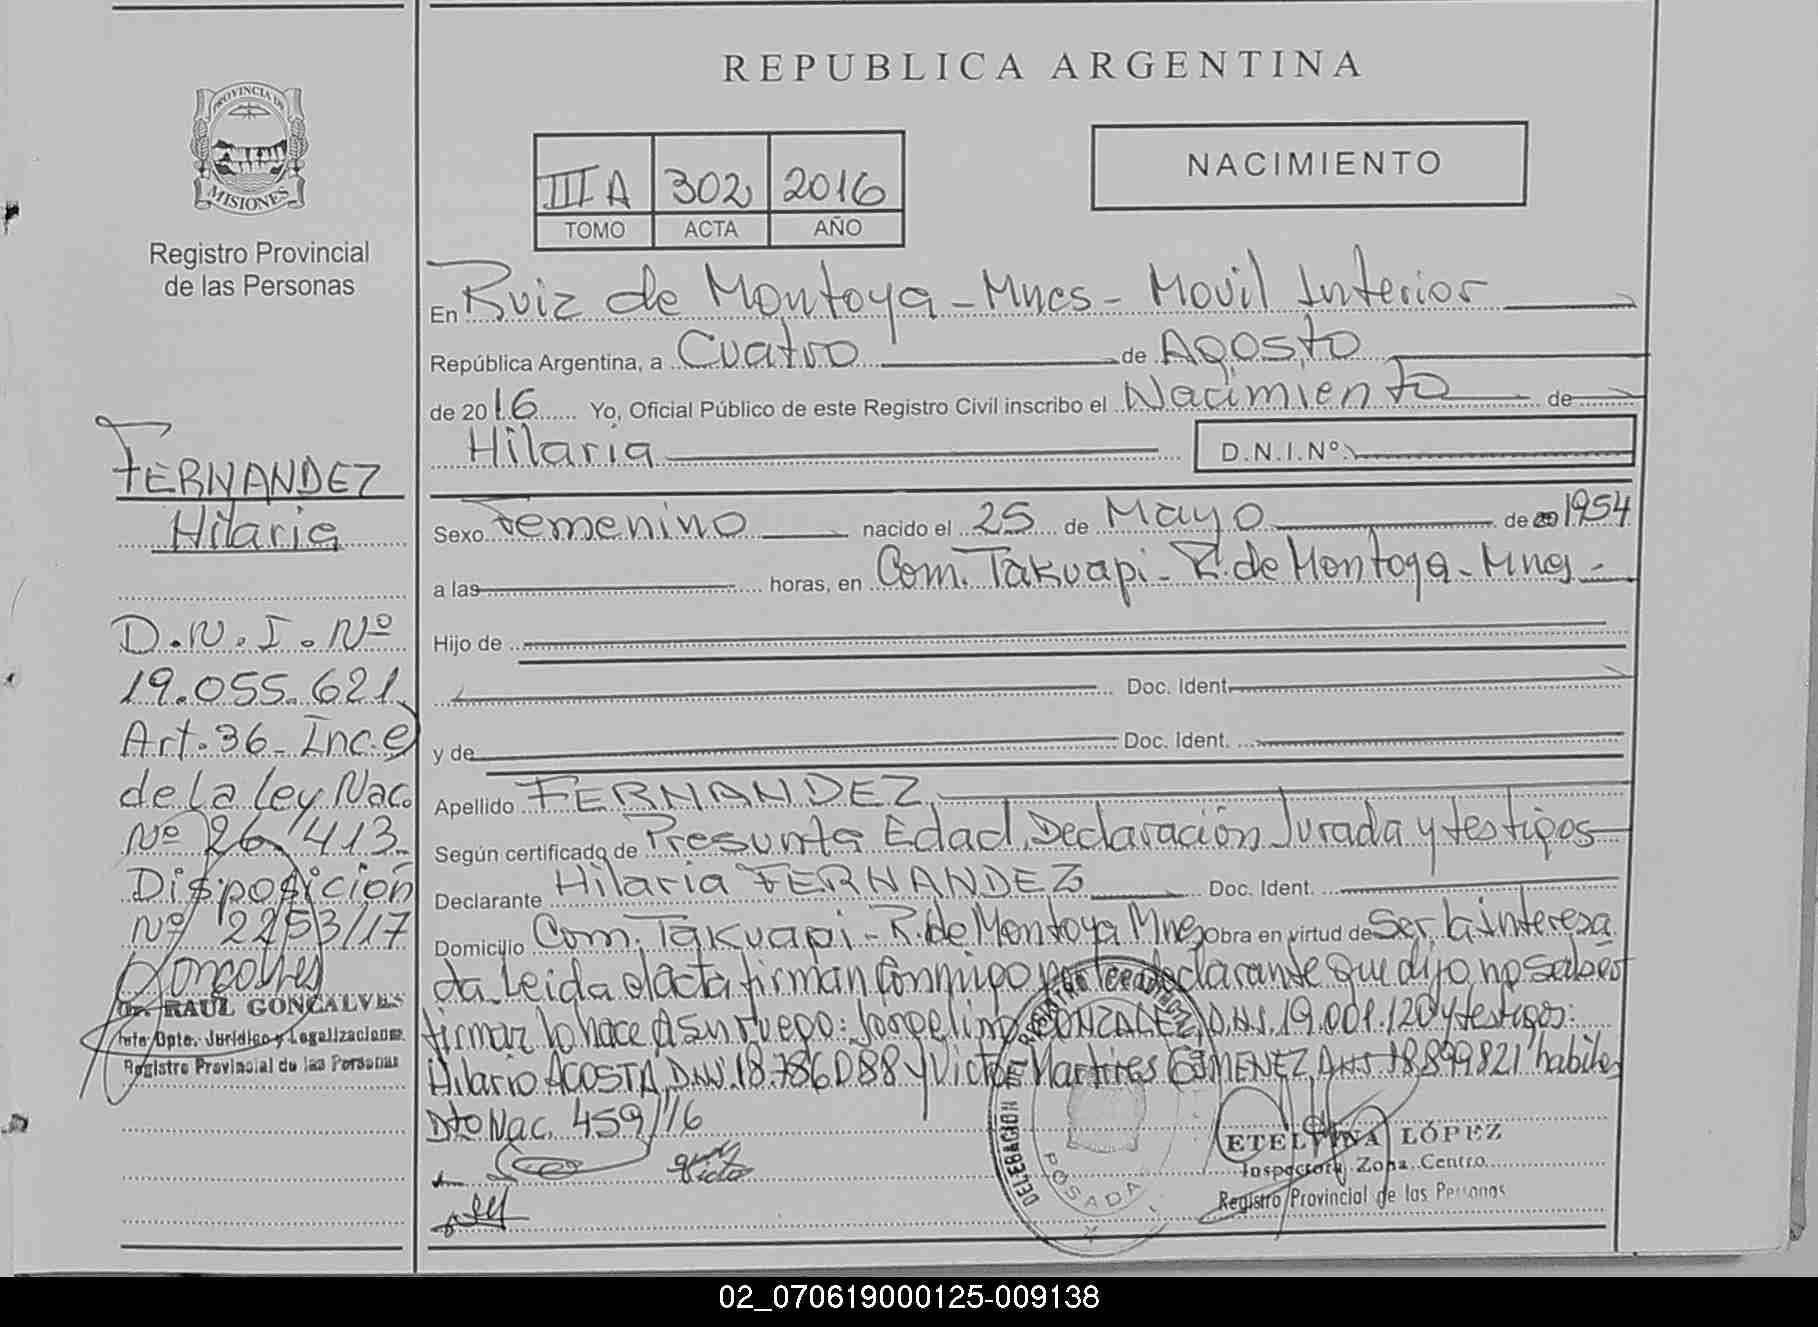 REPUBLICA ARGENTINA
PROVINCIA DE
MISIONES
Registro Provincial
de las Personas
III A 302 2016
TOMO ACTA AÑO
NACIMIENTO
En Ruiz de Montoya - Mnes - Movil Interior
República Argentina, a Cuatro de Agosto
de 2016 Yo, Oficial Público de este Registro Civil inscribo el Nacimiento de
Hilaria D.N.I.Nº
Sexo Femenino nacido el 25 de Mayo de 20 1954
a las horas, en Com. Takuapi - R. de Montoya - Mnes -
Hijo de
Doc. Ident.
y de Doc. Ident.
Apellido FERNANDEZ
Según certificado de Presunta Edad, Declaración Jurada y testigos
Declarante Hilaria FERNANDEZ Doc. Ident.
Domicilio Com. Takuapi - R. de Montoya Mnes Obra en virtud de Ser la interesa
da. Leida el acta firman conmigo por la declarante que dijo no saber
firmar lo hace a su ruego: GONZALEZ, D.N.I. 19.001.120 y testigos:
Hilario ACOSTA, D.N.I. 18.786.088 y Victor Martires GIMENEZ, D.N.I. 18.899821 habiles
Dto Nac. 459/16
FERNANDEZ
Hilaria
D.N.I. Nº
19.055.621
Art. 36 - Inc. e)
de La Ley Nac.
Nº 26.413.
Disposición
Nº 2253/17
Dr. RAUL GONCALVES
Jefe Dpto. Jurídico y Legalizaciones
Registro Provincial de las Personas
DELEGACION
POSADA
ETELVINA LÓPEZ
Inspectora Zona Centro
Registro Provincial de las Personas
02_070619000125-009138